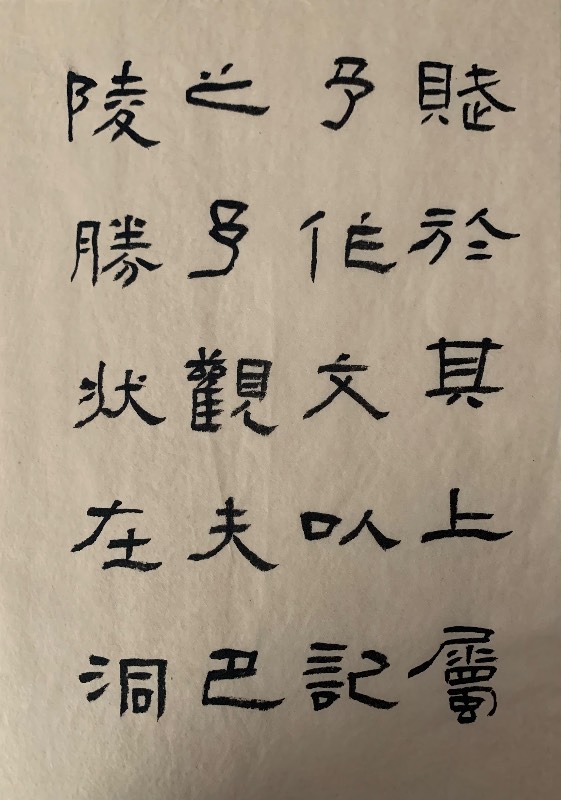 賦於其上屬
予作文以記
之予觀夫巴
陵勝狀在洞